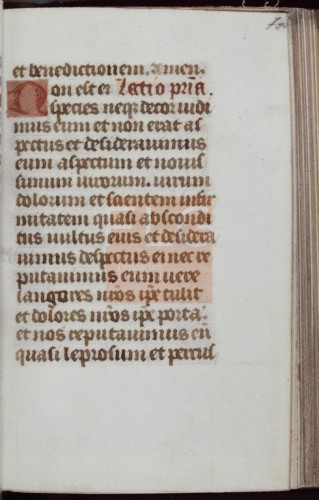 et benedictionem. amen.
Non est ei Lectio pria.
species neq3 decor vidi
mus eum et non erat as
pectus et desideravimus
eum aspectum et novis
simum virorum. virum
dolorum et scientem infir
mitatem quasi abscondi
tus vultus eius et desidera
vimus despectus ei nec re
putavimus eum vere
langores nr̄os ip̄e tulit
et dolores nr̄os ip̄e porta.
et nos reputavimus eū
quasi leprosum et percus